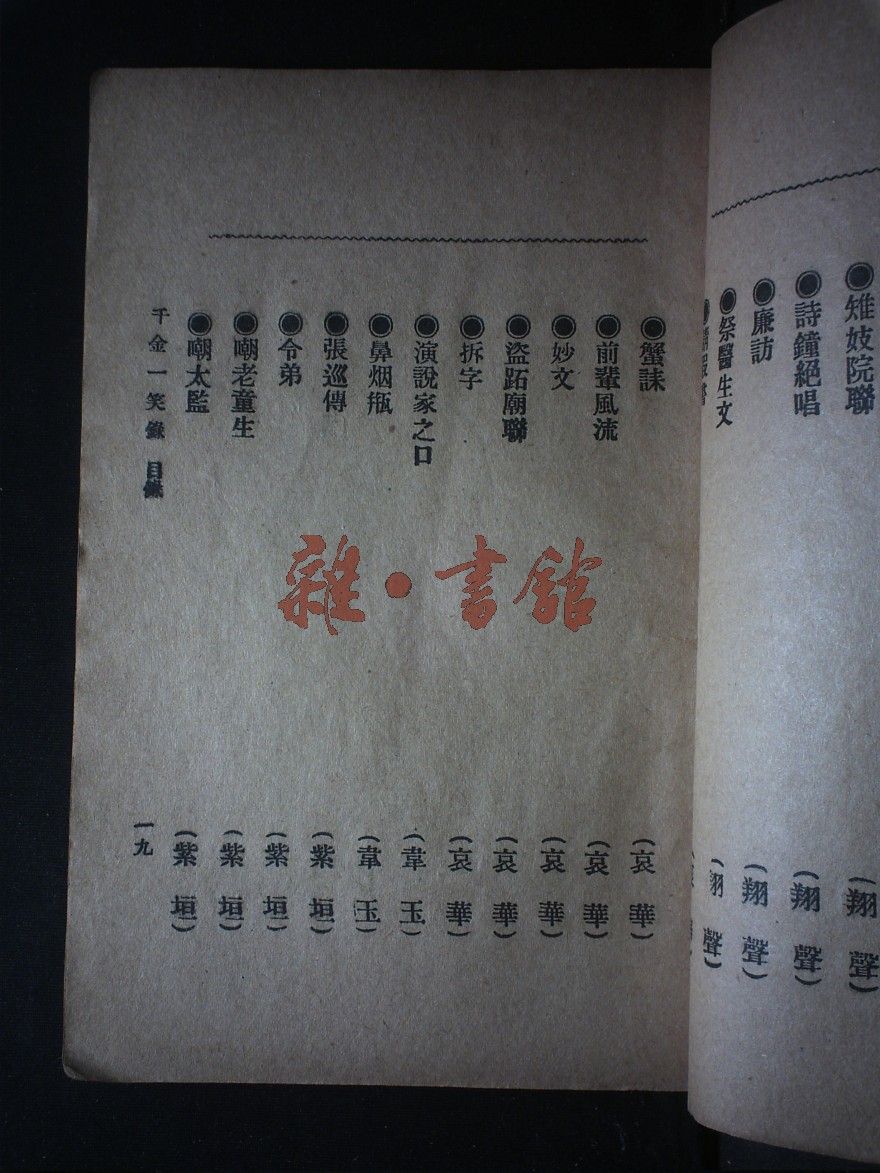 ◉雉妓院聯 (翔聲)
◉詩鐘絕唱 (翔聲)
◉廉訪 (翔聲)
◉祭醫生文 (翔聲)
◉蟹誄 (哀華)
◉前輩風流 (哀華)
◉妙文 (哀華)
◉盜跖廟聯 (哀華)
◉拆字 (哀華)
◉演說家之口 (韋玉)
◉鼻烟瓶 (韋玉)
◉張巡傳 (紫垣)
◉令弟 (紫垣)
◉嘲老童生 (紫垣)
◉嘲太監 (紫垣)
千金一笑錄 目錄 一九
雜·書館